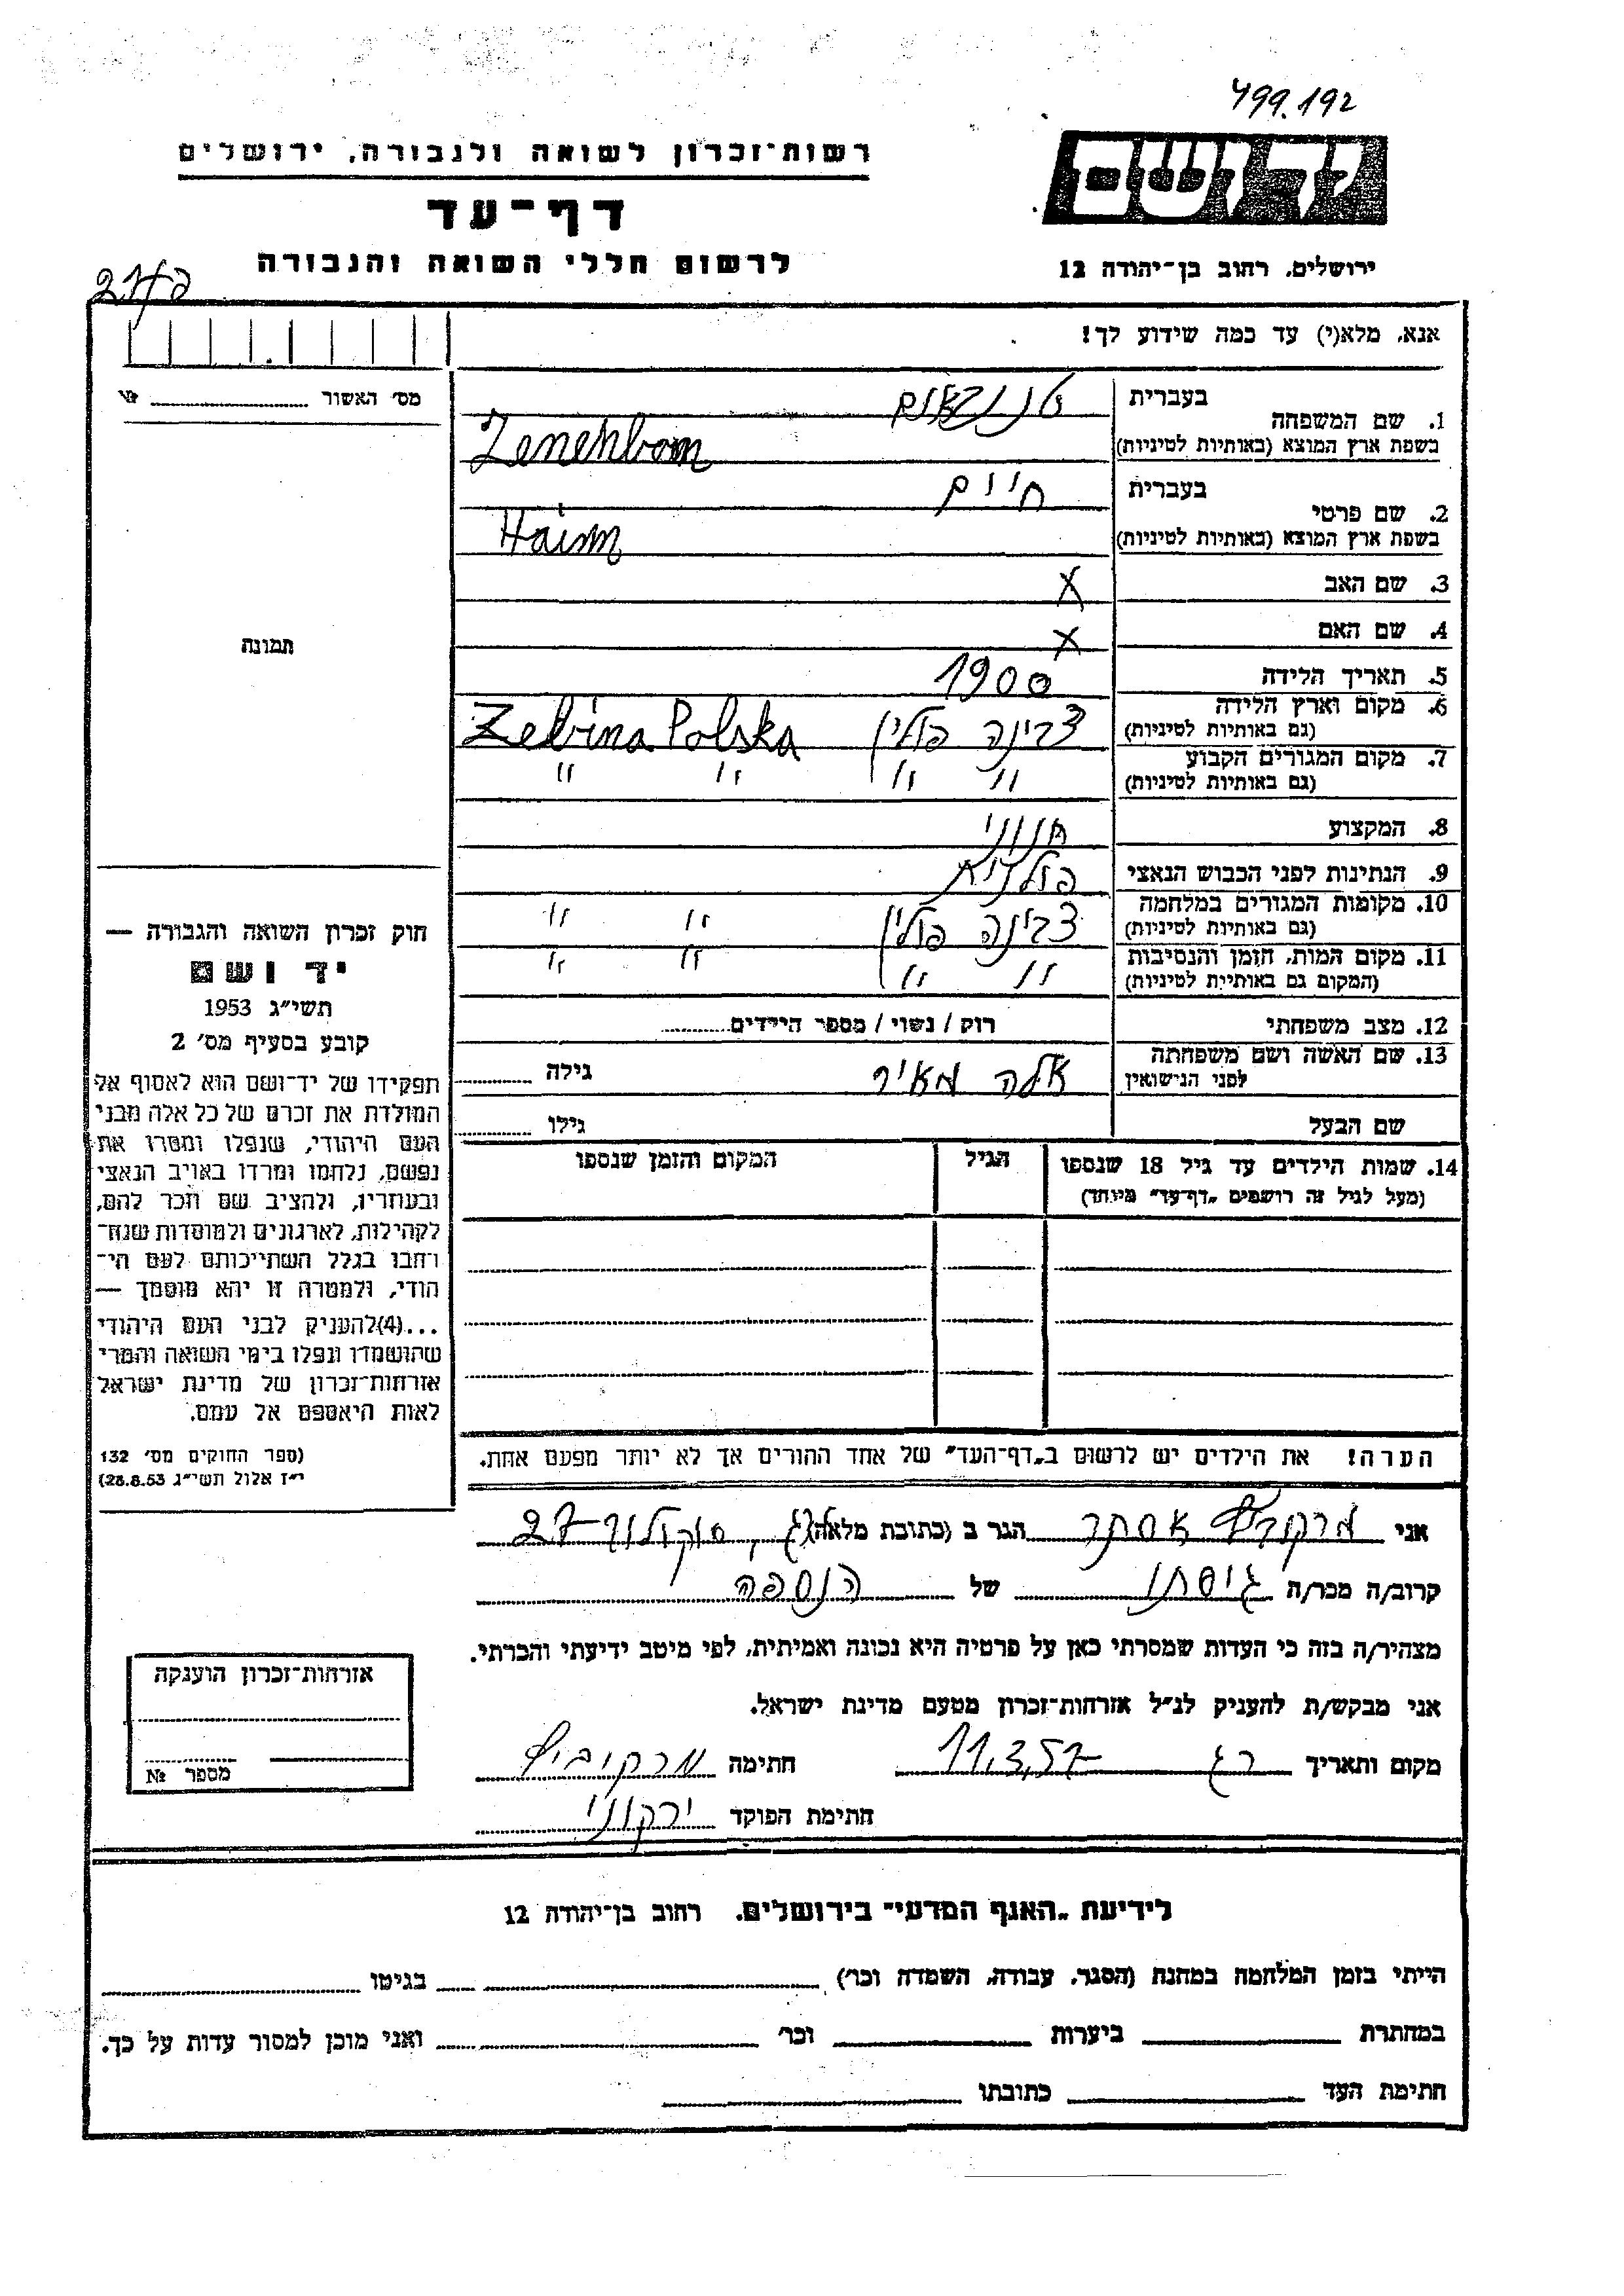 499.192
יד ושם
רשות־זכרון לשואה ולגבורה, ירושלים
דף־עד
לרשום חללי השואה והגבורה
ירושלים, רחוב בן־יהודה 12
אנא, מלא(י) עד כמה שידוע לך!
מס׳ האשור № 
1. שם המשפחה
בעברית
בשפת ארץ המוצא (באותיות לטיניות) Zenenbom
2. שם פרטי
בעברית חיים
בשפת ארץ המוצא (באותיות לטיניות) Haim
3. שם האב X
4. שם האם X
תמונה
5. תאריך הלידה 1900
6. מקום וארץ הלידה צבינה פולין Zebina Polska
(גם באותיות לטיניות)
7. מקום המגורים הקבוע " " " "
(גם באותיות לטיניות)
8. המקצוע חנוני
9. הנתינות לפני הכבוש הנאצי פולנית
10. מקומות המגורים במלחמה צבינה פולין " "
(גם באותיות לטיניות)
11. מקום המות, הזמן והנסיבות " " " "
(המקום גם באותיות לטיניות)
12. מצב משפחתי רוק / נשוי / מספר הילדים
13. שם האשה ושם משפחתה אלה מאיר גילה
לפני הנישואין
שם הבעל גילו
14. שמות הילדים עד גיל 18 שנספו הגיל המקום והזמן שנספו
(מעל לגיל זה רושמים „דף־עד״ מיוחד)
הערה! את הילדים יש לרשום ב„דף־העד״ של אחד ההורים אך לא יותר מפעם אחת.
חוק זכרון השואה והגבורה —
יד ושם
תשי״ג 1953
קובע בסעיף מס׳ 2
תפקידו של יד־ושם הוא לאסוף אל
המולדת את זכרם של כל אלה מבני
העם היהודי, שנפלו ומסרו את
נפשם, נלחמו ומרדו באויב הנאצי
ובעוזריו, ולהציב שם וזכר להם,
לקהילות, לארגונים ולמוסדות שנח־
רבו בגלל השתייכותם לעם הי־
הודי, ולמטרה זו יהא מוסמך —
...(4) להעניק לבני העם היהודי
שהושמדו ונפלו בימי השואה והמרי
אזרחות־זכרון של מדינת ישראל
לאות היאספם אל עמם.
(ספר החוקים מס׳ 132
י״ז אלול תשי״ג 28.8.53)
אני מרקוביץ אסתר הגר ב (כתובת מלאה) סוקולוב 27
קרוב/ה מכר/ה גיסתו של הנספה
מצהיר/ה בזה כי העדות שמסרתי כאן על פרטיה היא נכונה ואמיתית, לפי מיטב ידיעתי והכרתי.
אני מבקש/ת להעניק לנ״ל אזרחות־זכרון מטעם מדינת ישראל.
מקום ותאריך רג 11.3.57 חתימה מרקוביץ
חתימת הפוקד ירקוני
אזרחות־זכרון הוענקה
מספר №
לידיעת „האגף המדעי״ בירושלים, רחוב בן־יהודה 12
הייתי בזמן המלחמה במחנה (הסגר, עבודה, השמדה וכר׳) בגיטו
במחתרת ביערות וכר׳ ואני מוכן למסור עדות על כך.
חתימת העד כתובתו